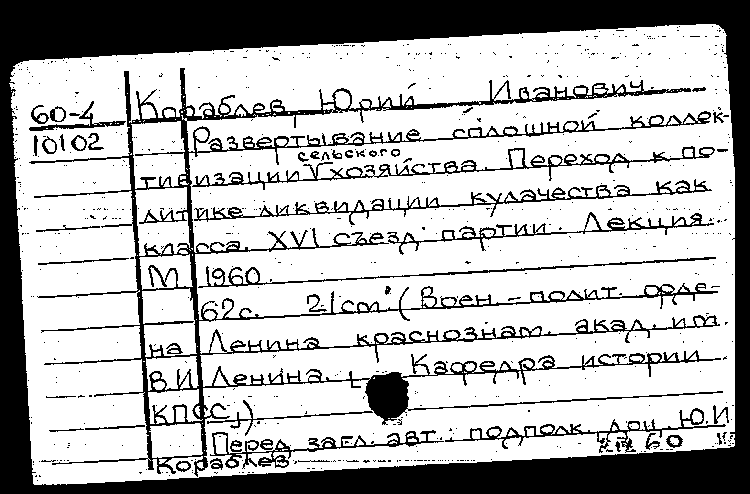 60-4 Кораблев, Юрий Иванович.
10102 Развертывание сплошной коллек-
сельского
тивизации V хозяйства. Переход к по-
литике ликвидации кулачества как
класса. XVI съезд партии. Лекция.
М 1960.
62с. 21cm (Воен.-полит. орде-
на Ленина краснознам. акад. им.
В.И. Ленина. Кафедра истории
КПСС).
Перед загл. авт.: подполк. доц. Ю.И
Кораблев. 60